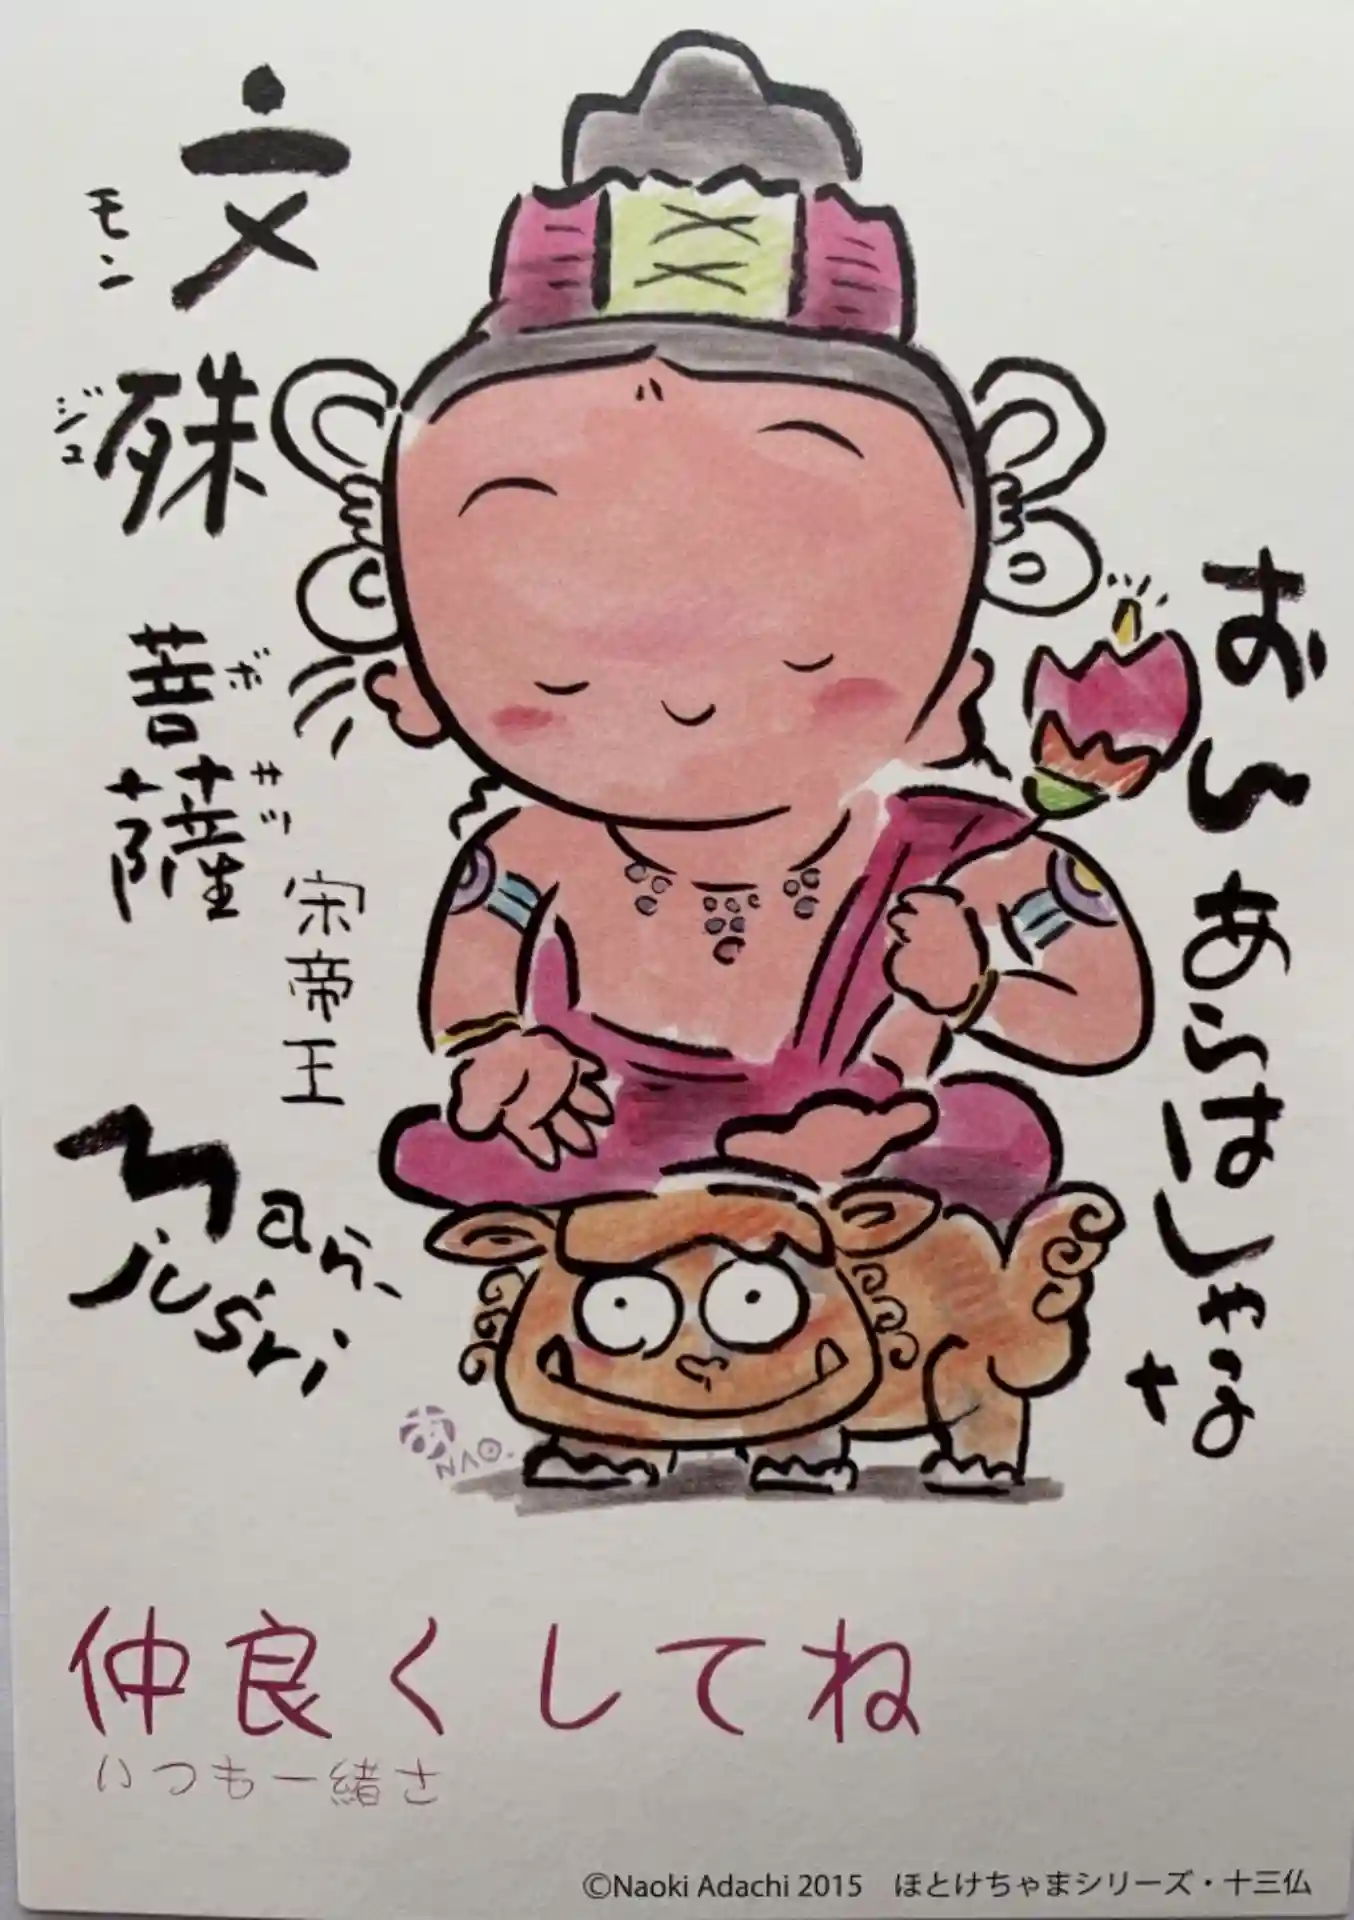 文殊菩薩
モンジュボサツ
宋帝王
Mañ-
juśri
おん あらはしゃな
NAO.
仲良くしてね
いつも一緒さ
©Naoki Adachi 2015 ほとけちゃまシリーズ・十三仏